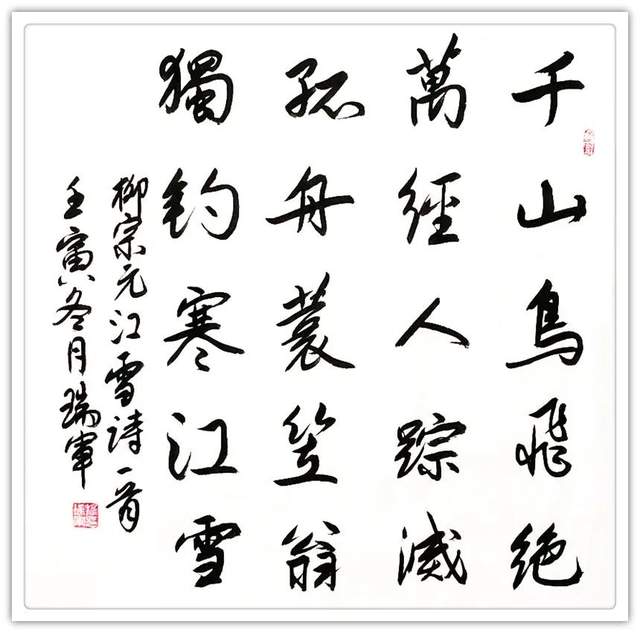 千山鳥飛絶
萬經人踪滅
孤舟蓑笠翁
獨钓寒江雪
柳宗元江雪詩一首
壬寅冬月瑞軍